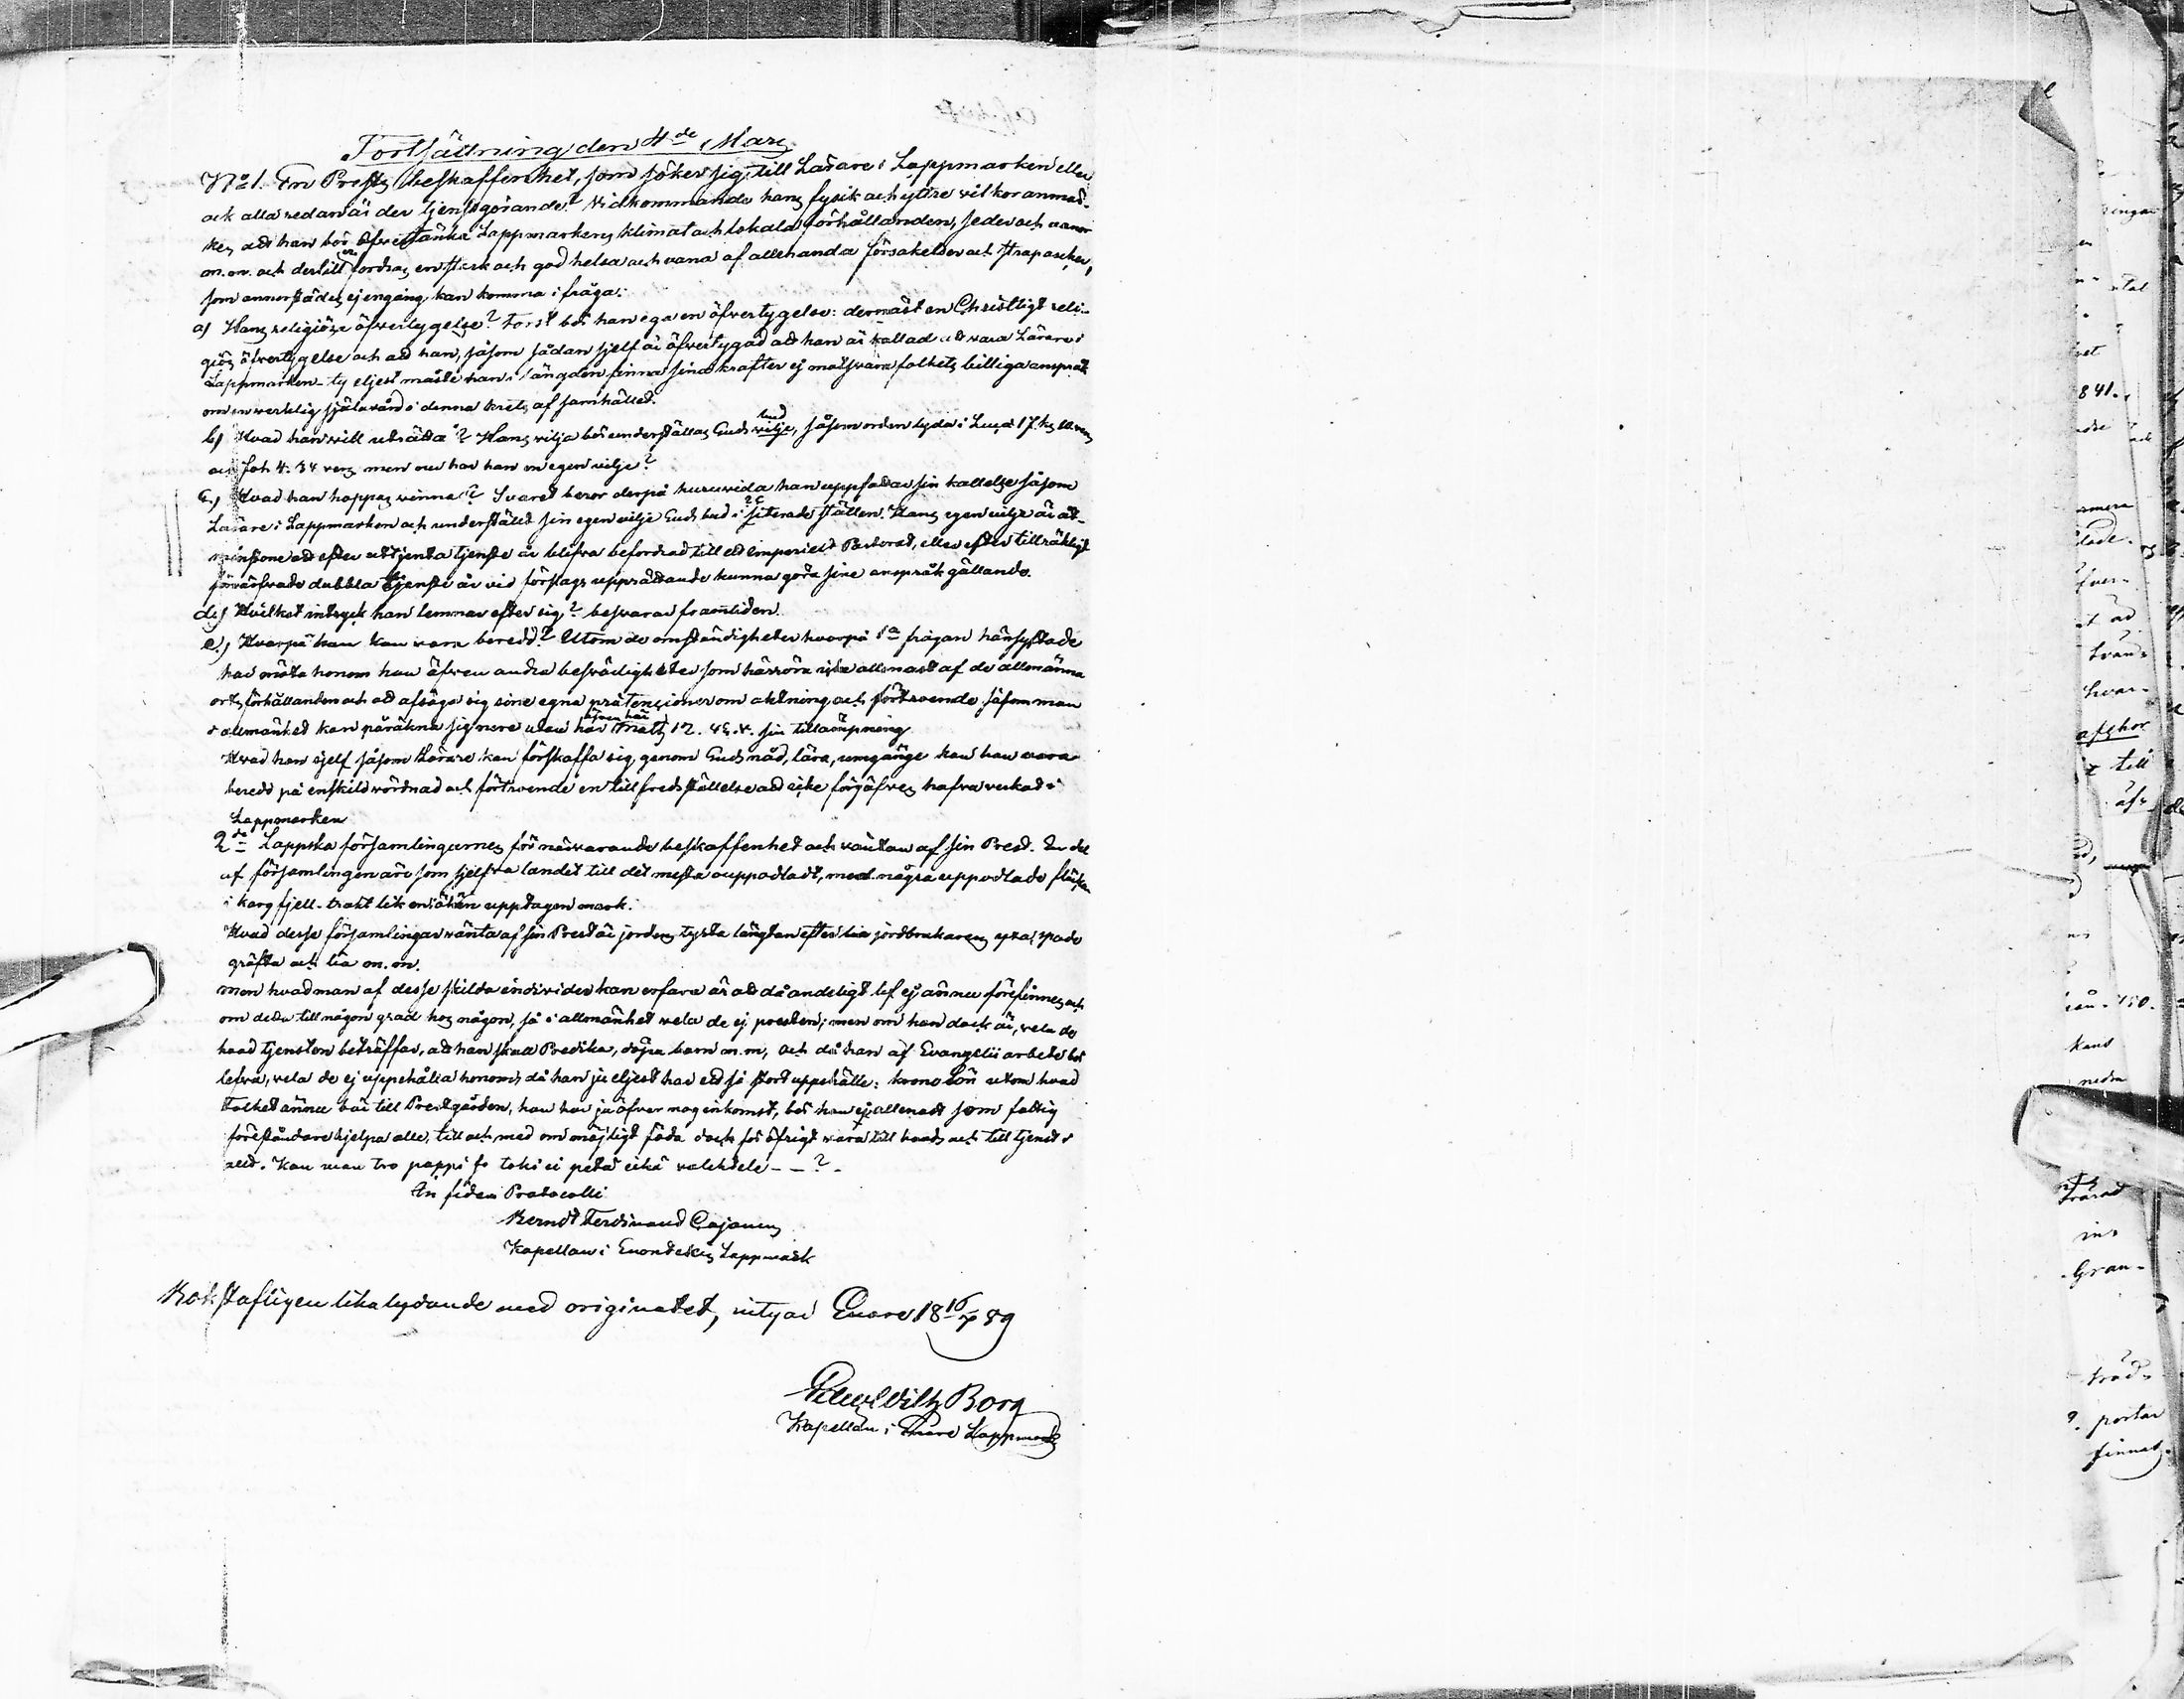 Fortsättning den 4de Mars
No 1. En Prests beskaffenhet, som söker sig till Lärare i Lappmarken eller
ock alla redan är der tjenstgörande? Vidkommande hans fysik och yttre vilkor anmär-
kes, att han bör öfvertänka Lappmarkens klimat och lokala förhållanden, seder och vanor
m.m. och dertill fordras en stark och god helsa och vana af allehanda försakelser och strapaser,
som annorstädes ej engång kan komma i fråga.
a) Hans religiöse öfvertygelse? Först bör han ega en öfvertygelse: dernäst en Christligt reli-
giös öfvertygelse och att han, såsom sådan sjelf är öfvertygad att han är kallad att vara Lärare i
Lappmarken - ty eljest måste han i längden finna sina krafter ej motsvara folkets billiga anspråk
om en verklig själavård i denna krets af samhället.
b) Hvad han vill uträtta? Hans vilja bör underställas Guds vilje, såsom orden lyda i Luca 17. k. 10. vers
och Joh 4: 34 vers men nu har han en egen vilje?
c.) Hvad han hoppas vinna? Svaret beror derpå huruvida han uppfattar sin kallelse såsom
Lärare i Lappmarken och underställt sin egen vilje Guds bud i citerade ställen. Hans egen vilje är åt-
minstone att efter uttjenta tjenste år blifva befordrad till ett Imperielt Pastorat, eller efter tillräckligt
förvärfvade dubbla tjenste år vid förslags upprättande kunna göra sine anspråk gällande.
d) Hvilket intryck han lemnar efter sig? besvarar framtiden.
e.) Hvarpå han kan vara beredd? Utom de omständigheter hvarpå 1a frågan hänsyftade
har möta honom han äfven andra besvärligheter som härröra icke allenast af de allmänna
orts förhållanden och att afsäga sig sine egna pratensioner om aktning och förtroende såsom man
i allmänhet kan påräkna sig men här Math 12. 46. v. sin tillämpning
Hvad han sjelf såsom Lärare kan förskaffa sig, genom Guds nåd, lära, umgänge kan han vara
beredd på enskild vördnad och förtroende en tillfredsställelse att icke förgäfves hafva verkat i
Lappmarken
2de Lappska församlingarnes för närvarande beskaffenhet och väntan af sin Prest. En del
af församlingen äro som sjelfva landet till det mesta ouppodladt, med några uppodlade fläckar
i karg fjell-trakt lik en i öknen upptagen mark.
Hvad desse församlingar vänta af sin Prest är jordens tysta längtan efter sin jordbrukarens yxa, spade
gräfta och lia m.m.
men hvad man af desse skilda individer kan erfara är att då andeligt lif ej ännu förefinnes och
om detta till någon grad hos någon, så i allmänhet vela de ej presten; men om han dock är, vela de
hvad tjensten beträffar, att han skall Predika, döpa barn m.m, och då han af Evangelii arbete bör
lefva, vela de ej uppehålla honom, då han ju eljest har ett så stort uppehälle: krono lön utom hvad
Folket ännu bär till Prestgården, han har ju öfver nog inkomst, bör han ej allenast som fattig
föreståndare hjelpa alle, till och med om möjligt föda dock för öfrigt vara till hands och till tjenst i
allt. Kan man tro pappi jo toki ei petä eikä valehtele - - ?
In fidem Protocolli
Berndt Ferdinand Cajanus
Kapellan i Enontekis Lappmark
Bokstafligen lika lydande med originalet, intygar Enare 18 16/7 89
Borg
Kapellan i Enare Lappmark